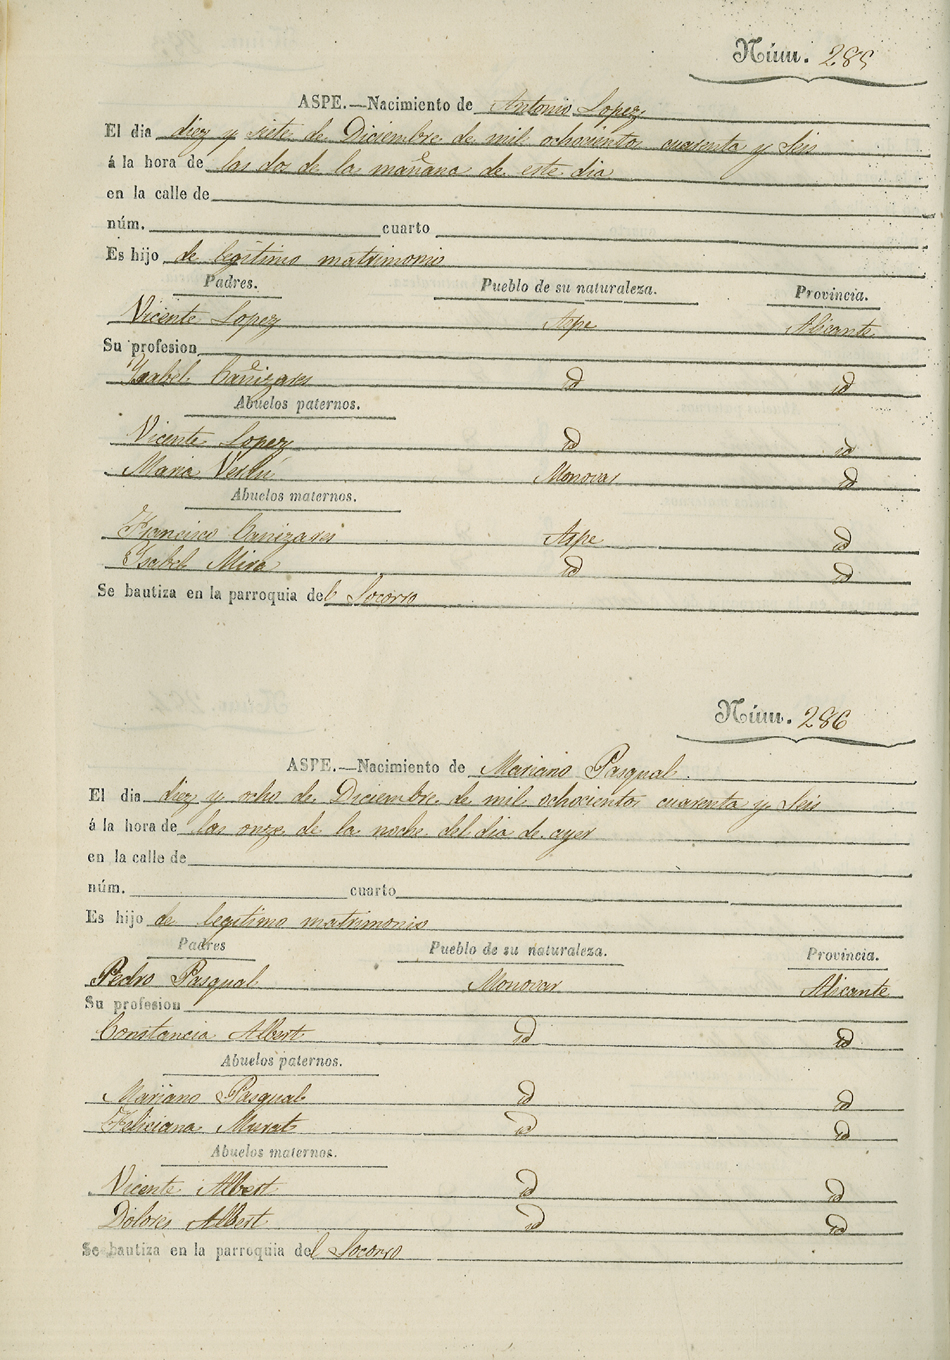 Núm. 285
ASPE.—Nacimiento de Antonio Lopez
El dia diez y siete de Diciembre de mil ochocientos cuarenta y seis
á la hora de las dos de la mañana de este dia
en la calle de
núm. cuarto
Es hijo de legítimo matrimonio
Padres. Pueblo de su naturaleza. Provincia.
Vicente Lopez Aspe Alicante
Su profesion
Ysabel Cañizares id id
Abuelos paternos.
Vicente Lopez id id
Maria Verdú Monovar id
Abuelos maternos.
Francisco Cañizares Aspe id
Ysabel Mira id id
Se bautiza en la parroquia del Socorro
Núm. 286
ASPE.—Nacimiento de Mariano Pasqual.
El dia diez y ocho de Diciembre de mil ochocientos cuarenta y seis
á la hora de las onze de la noche del dia de ayer
en la calle de
núm. cuarto
Es hijo de legítimo matrimonio
Padres Pueblo de su naturaleza. Provincia.
Pedro Pasqual Monovar Alicante
Su profesion
Constancia Albert id id
Abuelos paternos.
Mariano Pasqual id id
Feliciana id id
Abuelos maternos.
Vicente Albert id id
Dolores Albert id id
Se bautiza en la parroquia del Socorro